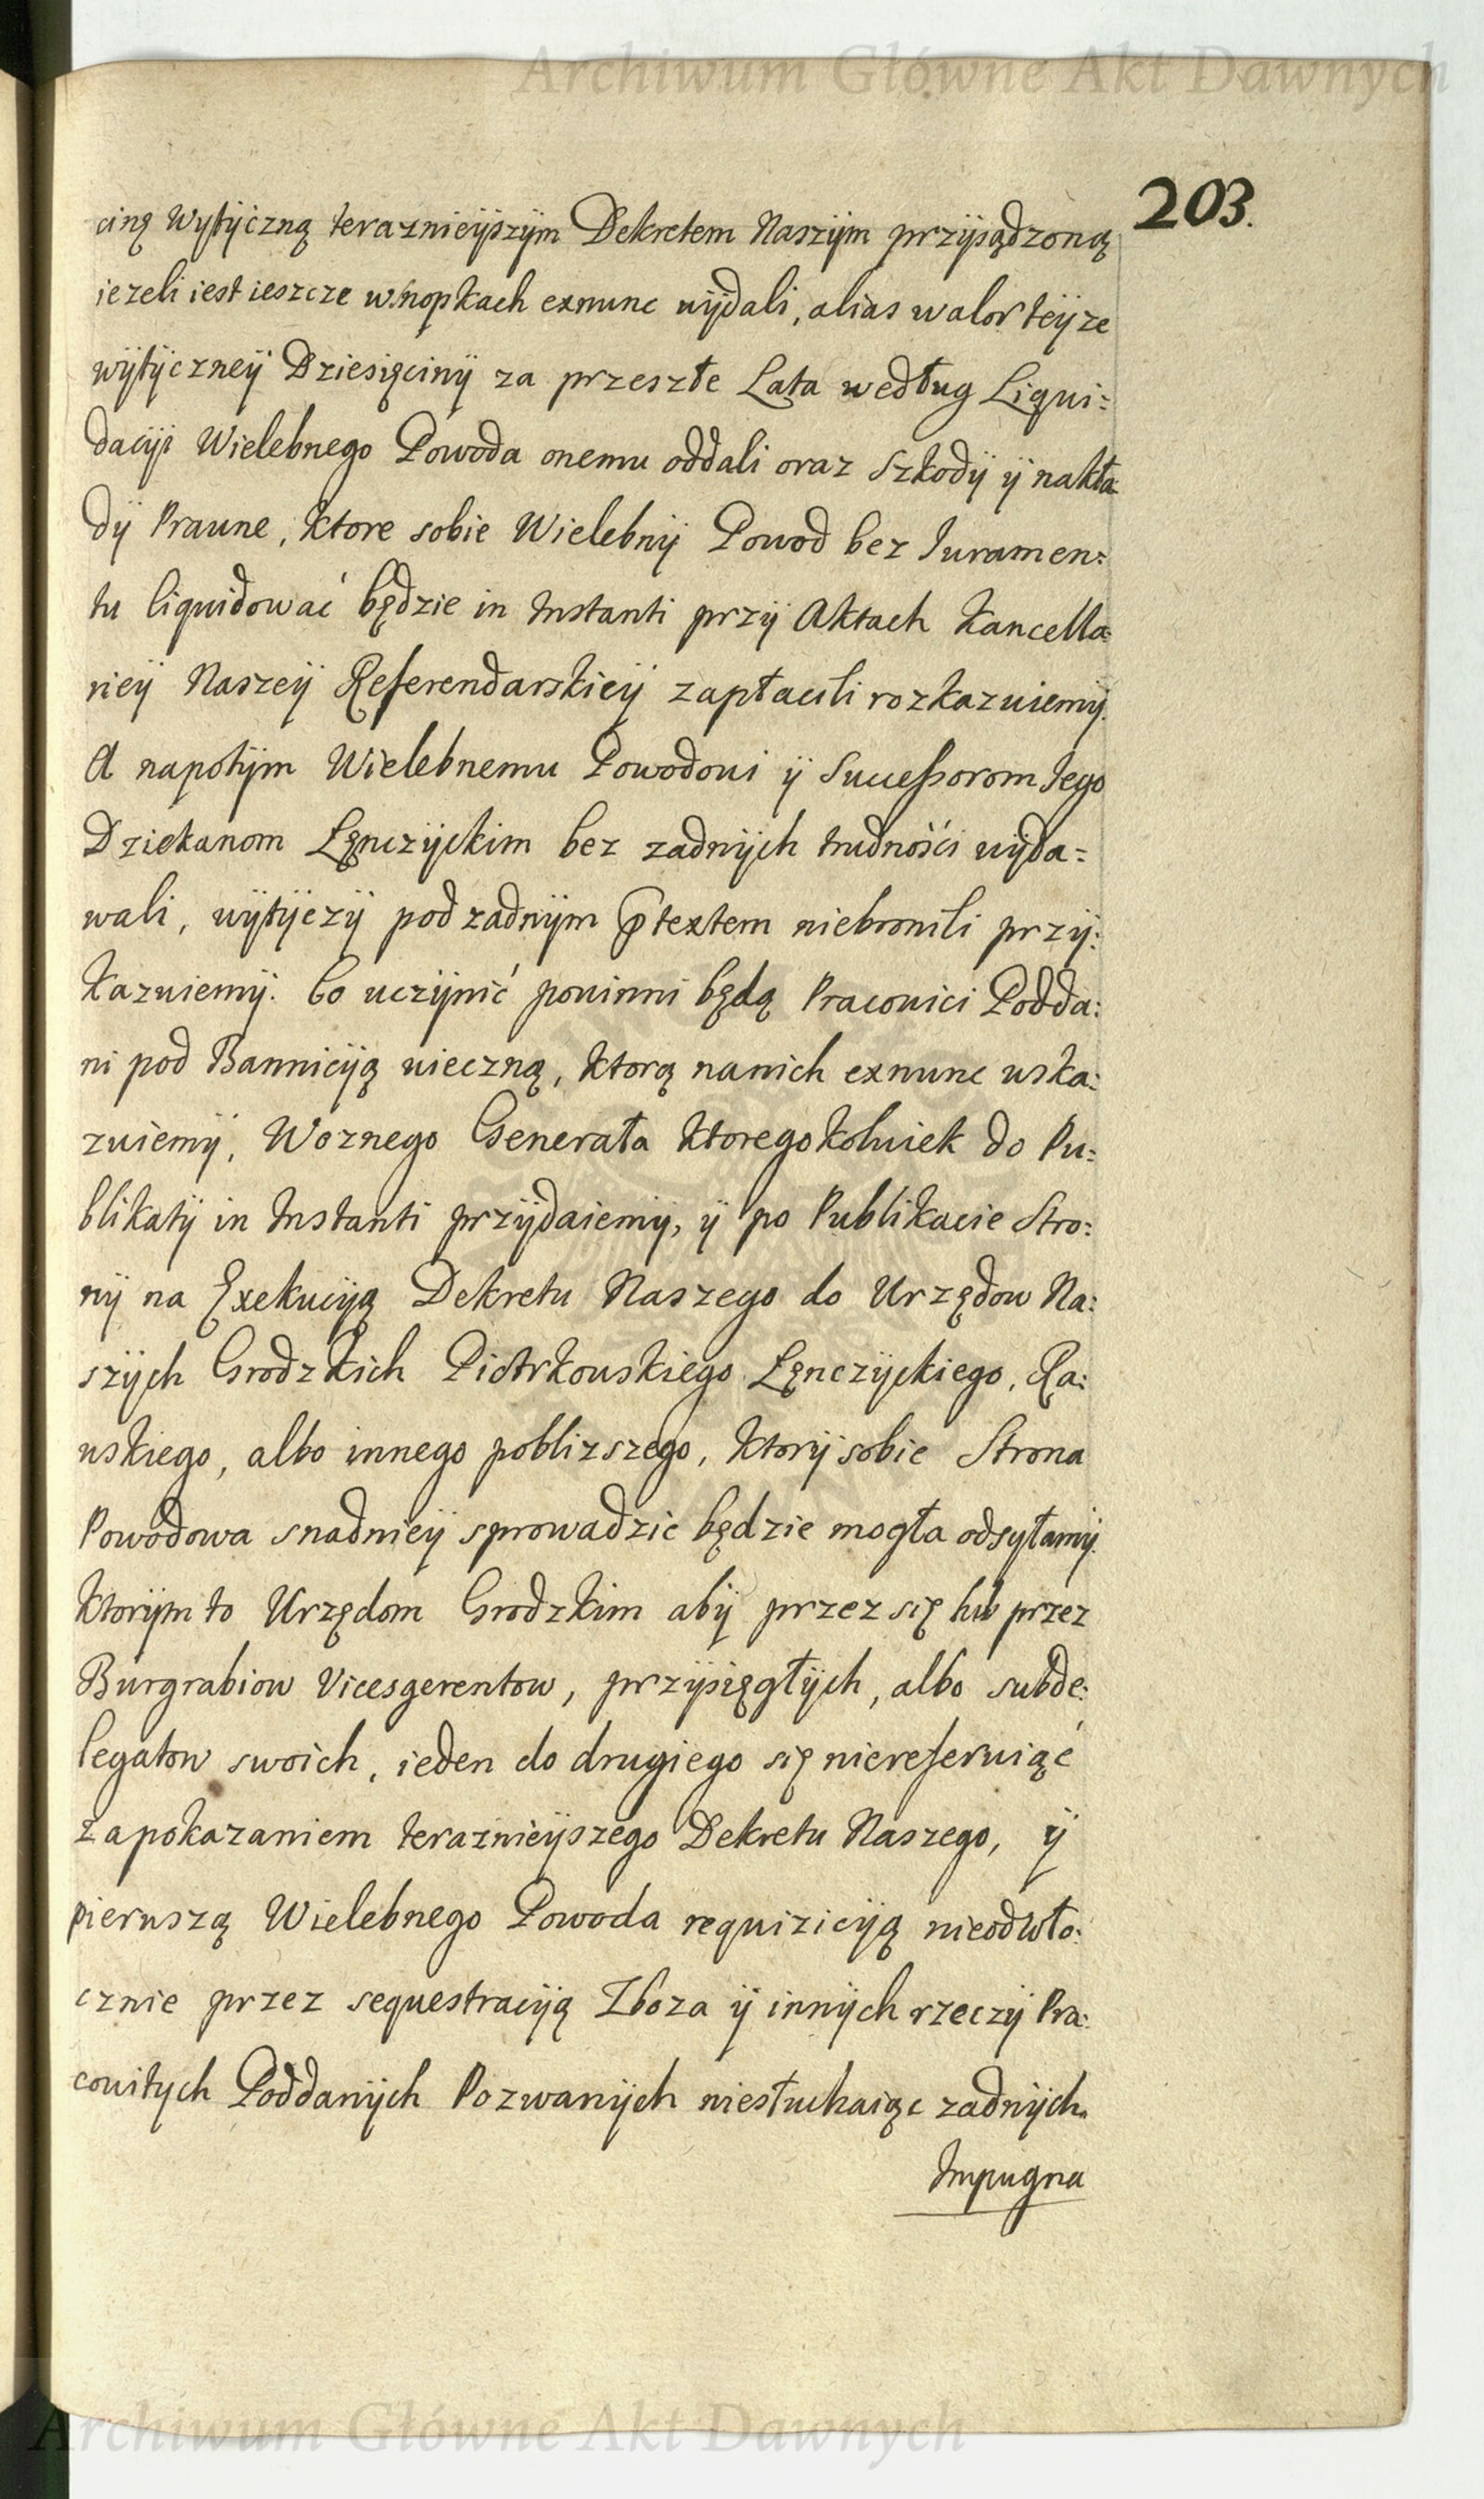 Archiwum Główne Akt Dawnych
203.
cinę Wytÿczną teraznieÿszÿm Dekretem Naszÿm przÿsądzoną
iezeli iest ieszcze w snopkach exnunc wÿdali, alias walor teÿze
wÿtÿczneÿ Dziesięcinÿ za przeszłe Lata według Liqui:
dacÿi Wielebnego Powoda onemu oddali oraz Szkodÿ ÿ nakła
dÿ Prawne, ktore sobie Wielebnÿ Powod bez Iuramen:
tu liquidować będzie in Instanti przÿ Aktach Kancella:
rieÿ Naszeÿ Referendarskieÿ zapłacili rozkazuiemÿ.
A napotÿm Wielebnemu Powodowi ÿ Successorom Iego
Dziekanom Lęnczÿckim bez zadnÿch trudności wÿda=
wali, wÿtÿczÿ pod zadnÿm ptextem niebronili przÿ:
kazuiemÿ. Co uczÿnić powinni będą Pracowici Podda:
ni pod Bannicÿą wieczną, ktorą nanich exnunc wska:
zuiemÿ, Woznego Generała ktoregokolwiek do Pu:
blikatÿ in Instanti przÿdaiemÿ, ÿ po Publikacie Stro:
nÿ na Exekucÿą Dekretu Naszego do Urzędow Na:
szÿch Grodzkich Piotrkowskiego Lęnczÿckiego, Ra:
wskiego, albo innego poblizszego, ktorÿ sobie Strona
Powodowa snadnieÿ sprowadzic będzie mogła odsyłamÿ.
ktorÿm to Urzędom Grodzkim abÿ przez się lub przez
Burgrabiow Vicesgerentow, przÿsięgłÿch, albo subde:
legatow swoich, ieden do drugiego się niereferuiąć
za pokazaniem teraznieÿszego Dekretu Naszego, ÿ
pierwszą Wielebnego Powoda requizicÿą nieodwło:
cznie przez sequestracÿą Zboza ÿ innÿch rzeczÿ Pra:
cowitych Poddanÿch Pozwanÿch niesłuchaiąc zadnÿch
Impugna
Archiwum Główne Akt Dawnych